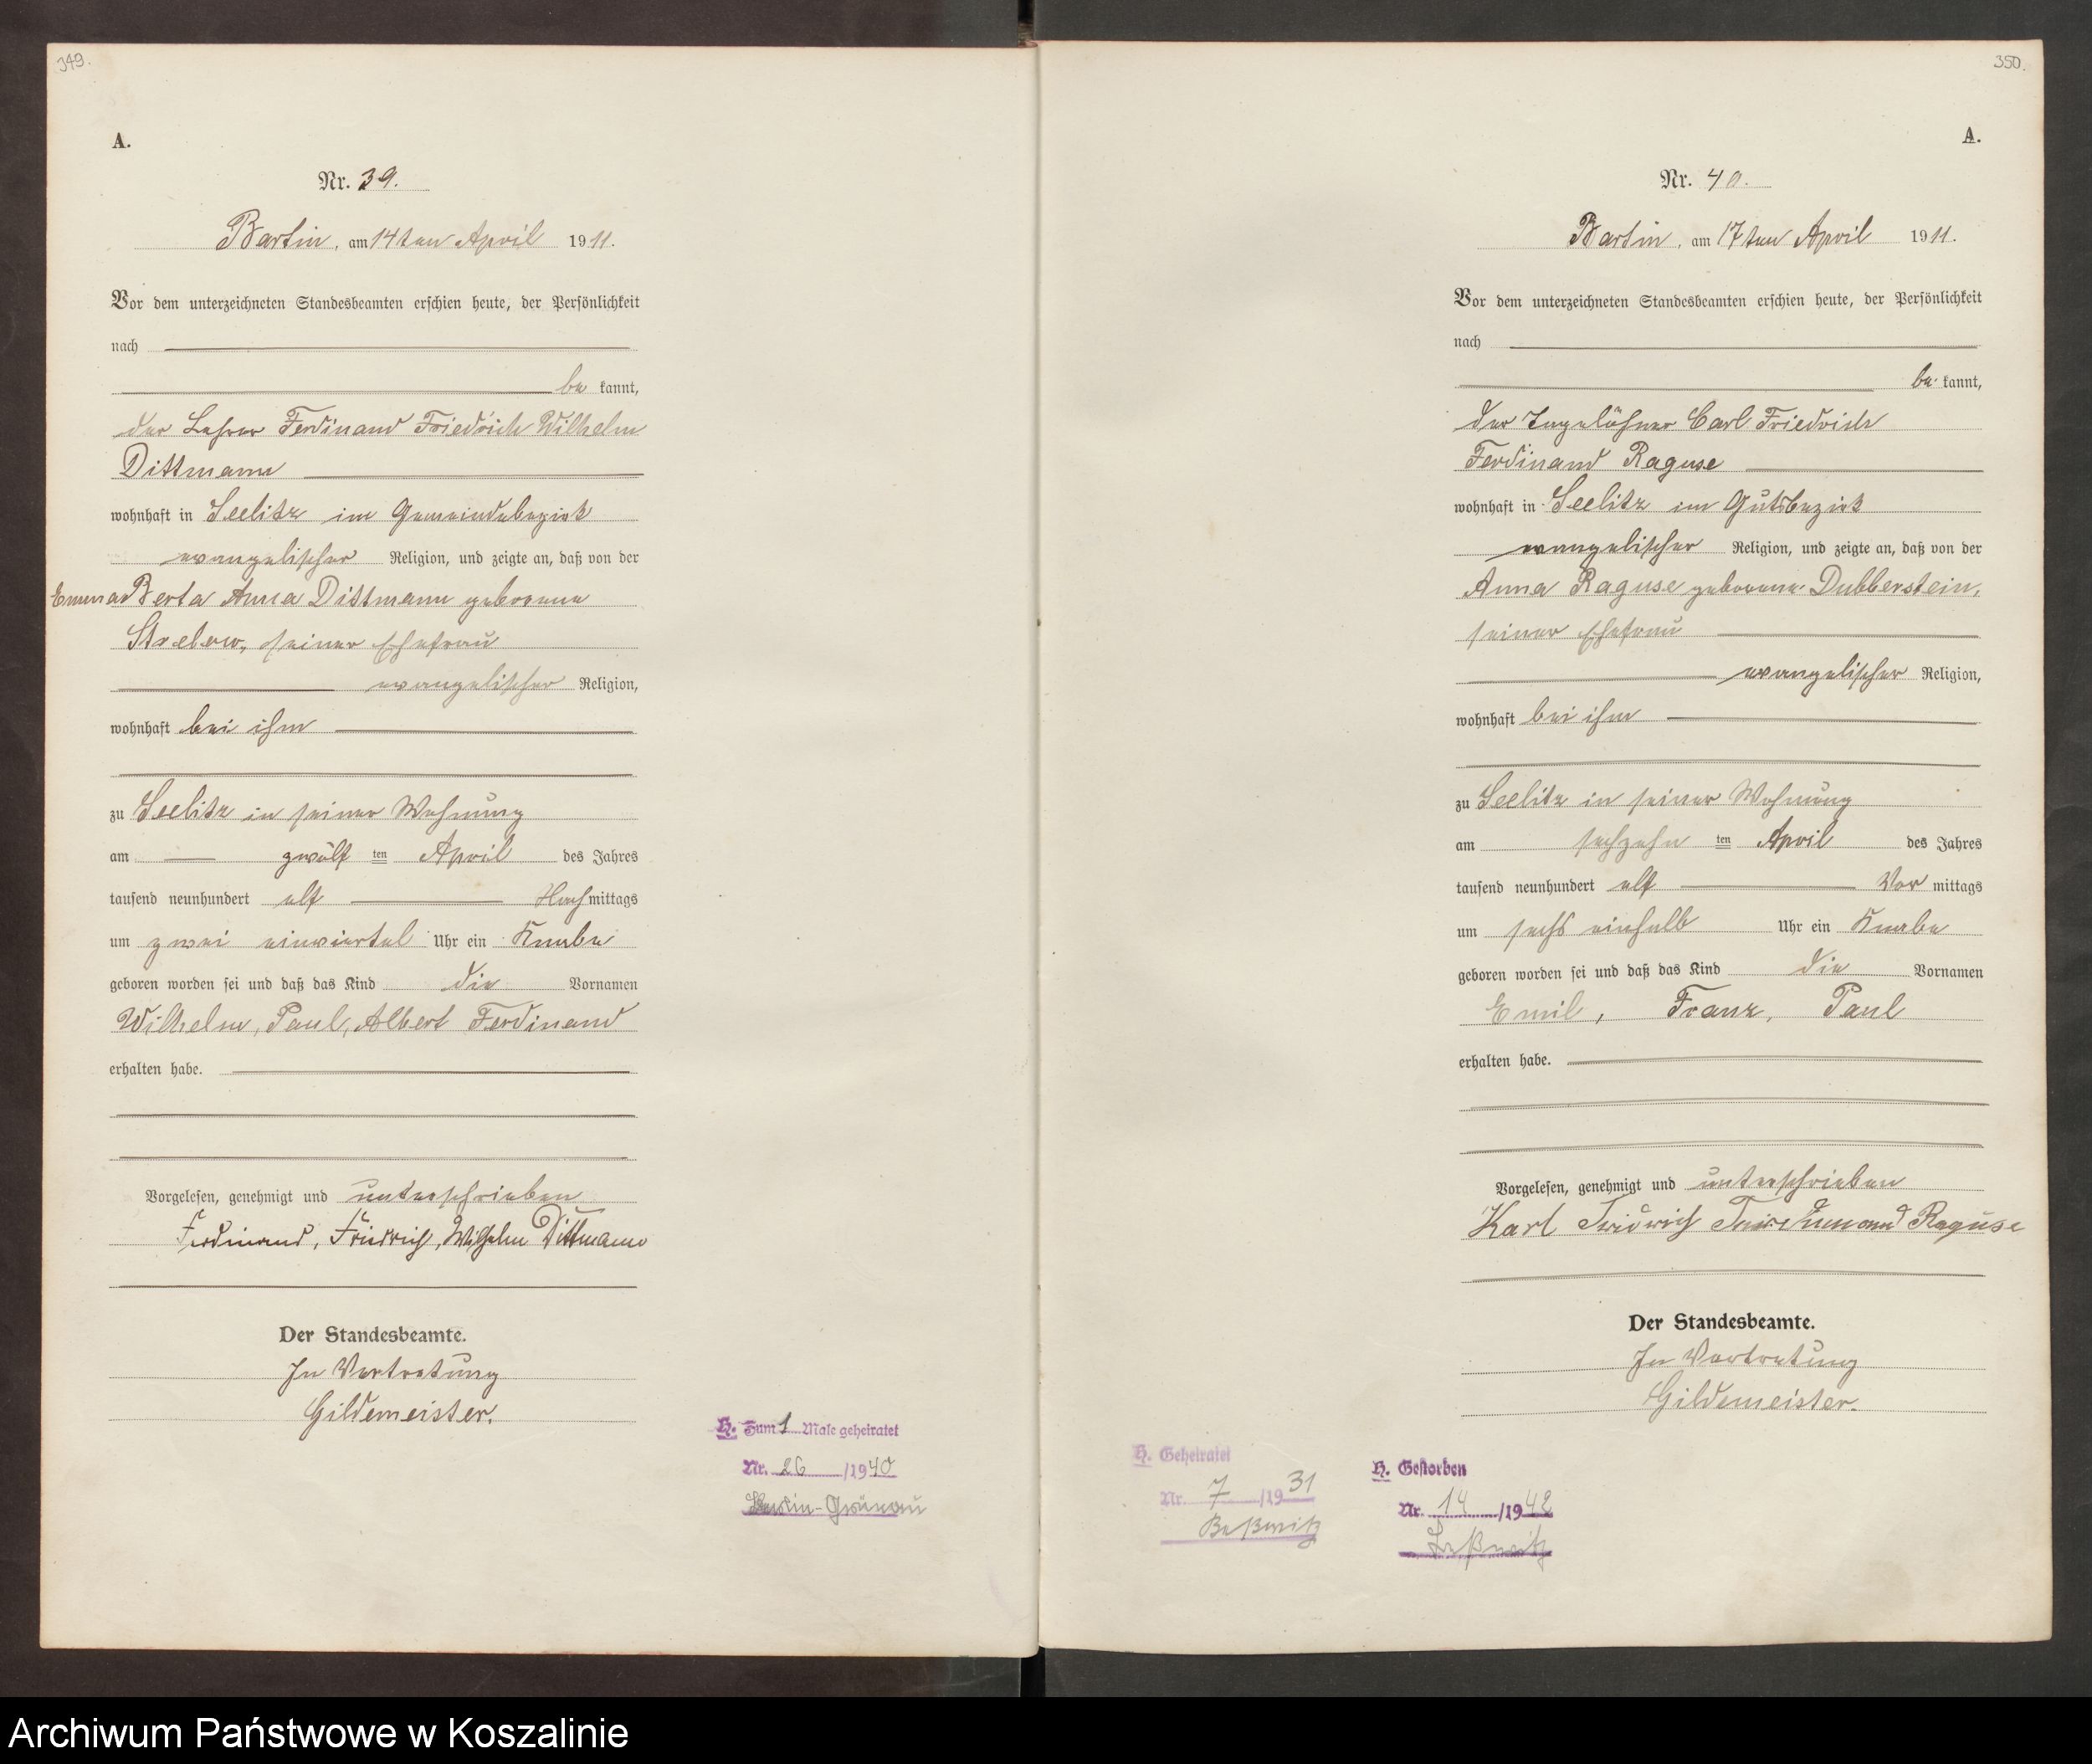 349.
A.
Nr. 39.
Bartin, am 14ten April 1911.
Vor dem unterzeichneten Standesbeamten erschien heute, der Persönlichkeit
nach
be kannt,
der Lehrer Ferdinand Friedrich Wilhelm
Dittmann
wohnhaft in Seelitz im Gemeindebezirk
evangelischer Religion, und zeigte an, daß von der
Emma Berta Anna Dittmann geborene
Strelow, seiner Ehefrau
evangelischer Religion,
wohnhaft bei ihm
zu Seelitz in seiner Wohnung
am zwölf ten April des Jahres
tausend neunhundert elf Nachmittags
um zwei einviertel Uhr ein Knabe
geboren worden sei und daß das Kind die Vornamen
Wilhelm, Paul, Albert Ferdinand
erhalten habe.
Vorgelesen, genehmigt und unterschrieben
Ferdinand, Friedrich, Wilhelm Dittmann
Der Standesbeamte.
In Vertretung
Gildemeister.
H. Zum 1 Male geheiratet
Nr. 26 /1940
Berlin-Grünau
350.
A.
Nr. 40.
Bartin, am 17ten April 1911.
Vor dem unterzeichneten Standesbeamten erschien heute, der Persönlichkeit
nach
be kannt,
der Tagelöhner Carl Friedrich
Ferdinand Raguse
wohnhaft in Seelitz im Gutsbezirk
evangelischer Religion, und zeigte an, daß von der
Anna Raguse geborene Dubberstein,
seiner Ehefrau
evangelischer Religion,
wohnhaft bei ihm
zu Seelitz in seiner Wohnung
am sechzehn ten April des Jahres
tausend neunhundert elf Vor mittags
um sechs einhalb Uhr ein Knabe
geboren worden sei und daß das Kind die Vornamen
Emil, Franz, Paul
erhalten habe.
Vorgelesen, genehmigt und unterschrieben
Karl Raguse
Der Standesbeamte.
In Vertretung
Gildemeister.
H. Geheiratet
Nr. 7 /1931
Beßwitz
H. Gestorben
Nr. 14 /1942
Archiwum Państwowe w Koszalinie